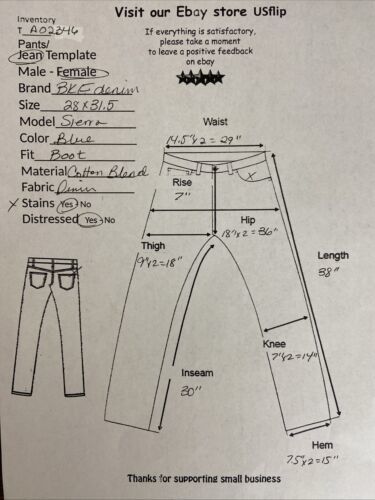 Visit our Ebay store USflip
If everything is satisfactory,
please take a moment
to leave a positive feedback
on ebay
Inventory
T A02346
Pants/
Jean Template
Male - Female
Brand BKE denim
Size 28 x 31.5
Model Sierra
Color Blue
Fit Boot
Material Cotton Blend
Fabric Denim
X Stains Yes - No
Distressed Yes - No
Waist
14.5"x2 = 29"
Rise
7"
X
Hip
18"x2 = 36"
Thigh
9"x2 = 18"
Length
38"
Knee
7"x2 = 14"
Inseam
30"
Hem
7.5"x2 = 15"
Thanks for supporting small business